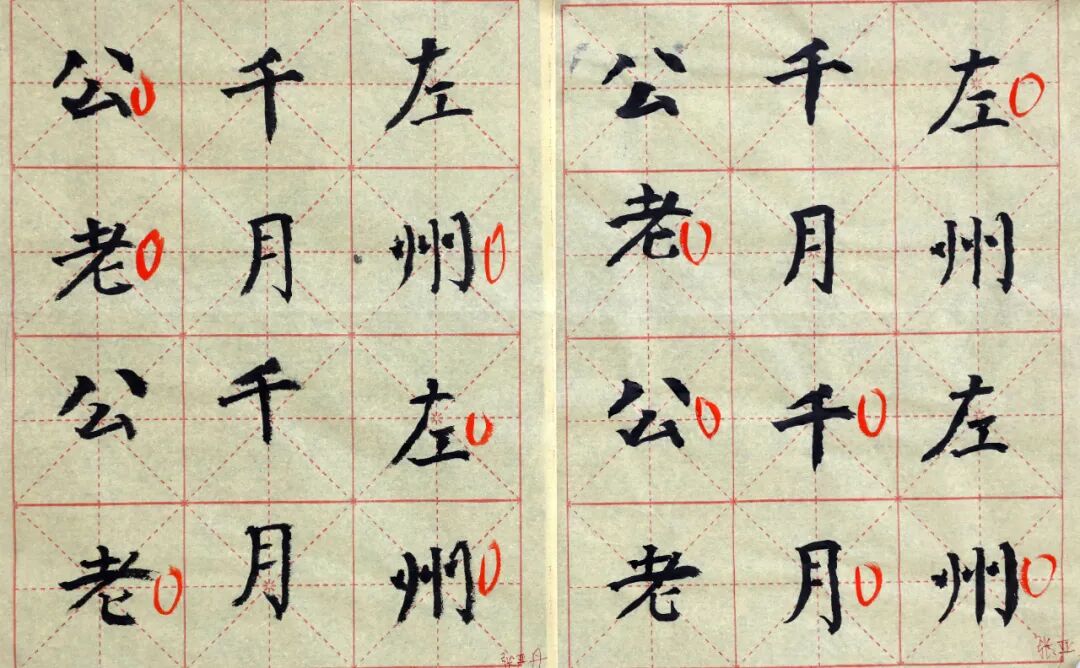 公千左
老月州
公千左
老月州
张亚丹
公千左
老月州
公千左
老月州
张亚